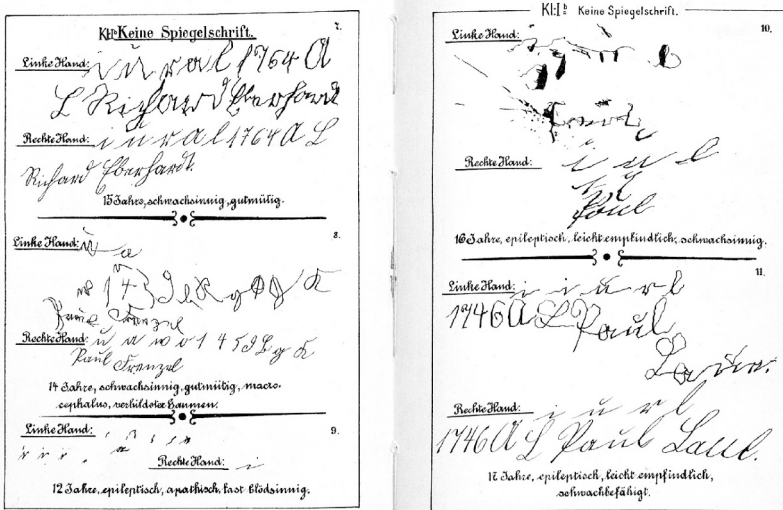 Kl:Iᵇ Keine Spiegelschrift.
7.
Linke Hand: i u r a l 1764 A
L Richard Eberhardt
Rechte Hand: i u r a l 1764 A L
Richard Eberhardt.
15 Jahre, schwachsinnig, gutmütig.
8.
Linke Hand: u a
Paul Frenzel
Rechte Hand: u a w o 1 4 5
Paul Frenzel
14 Jahre, schwachsinnig, gutmütig, macro-
cephalus, verbildeter Gaumen.
9.
Linke Hand:
Rechte Hand: i
12 Jahre, epileptisch, apathisch, fast blödsinnig.
Kl:Iᵇ Keine Spiegelschrift.
10.
Linke Hand:
Rechte Hand: i u l
Paul
16 Jahre, epileptisch, leicht empfindlich, schwachsinnig.
11.
Linke Hand: i i u r l
1746 A L Paul
Rechte Hand: i u r l
1746 A L Paul
17 Jahre, epileptisch, leicht empfindlich,
schwachbefähigt.